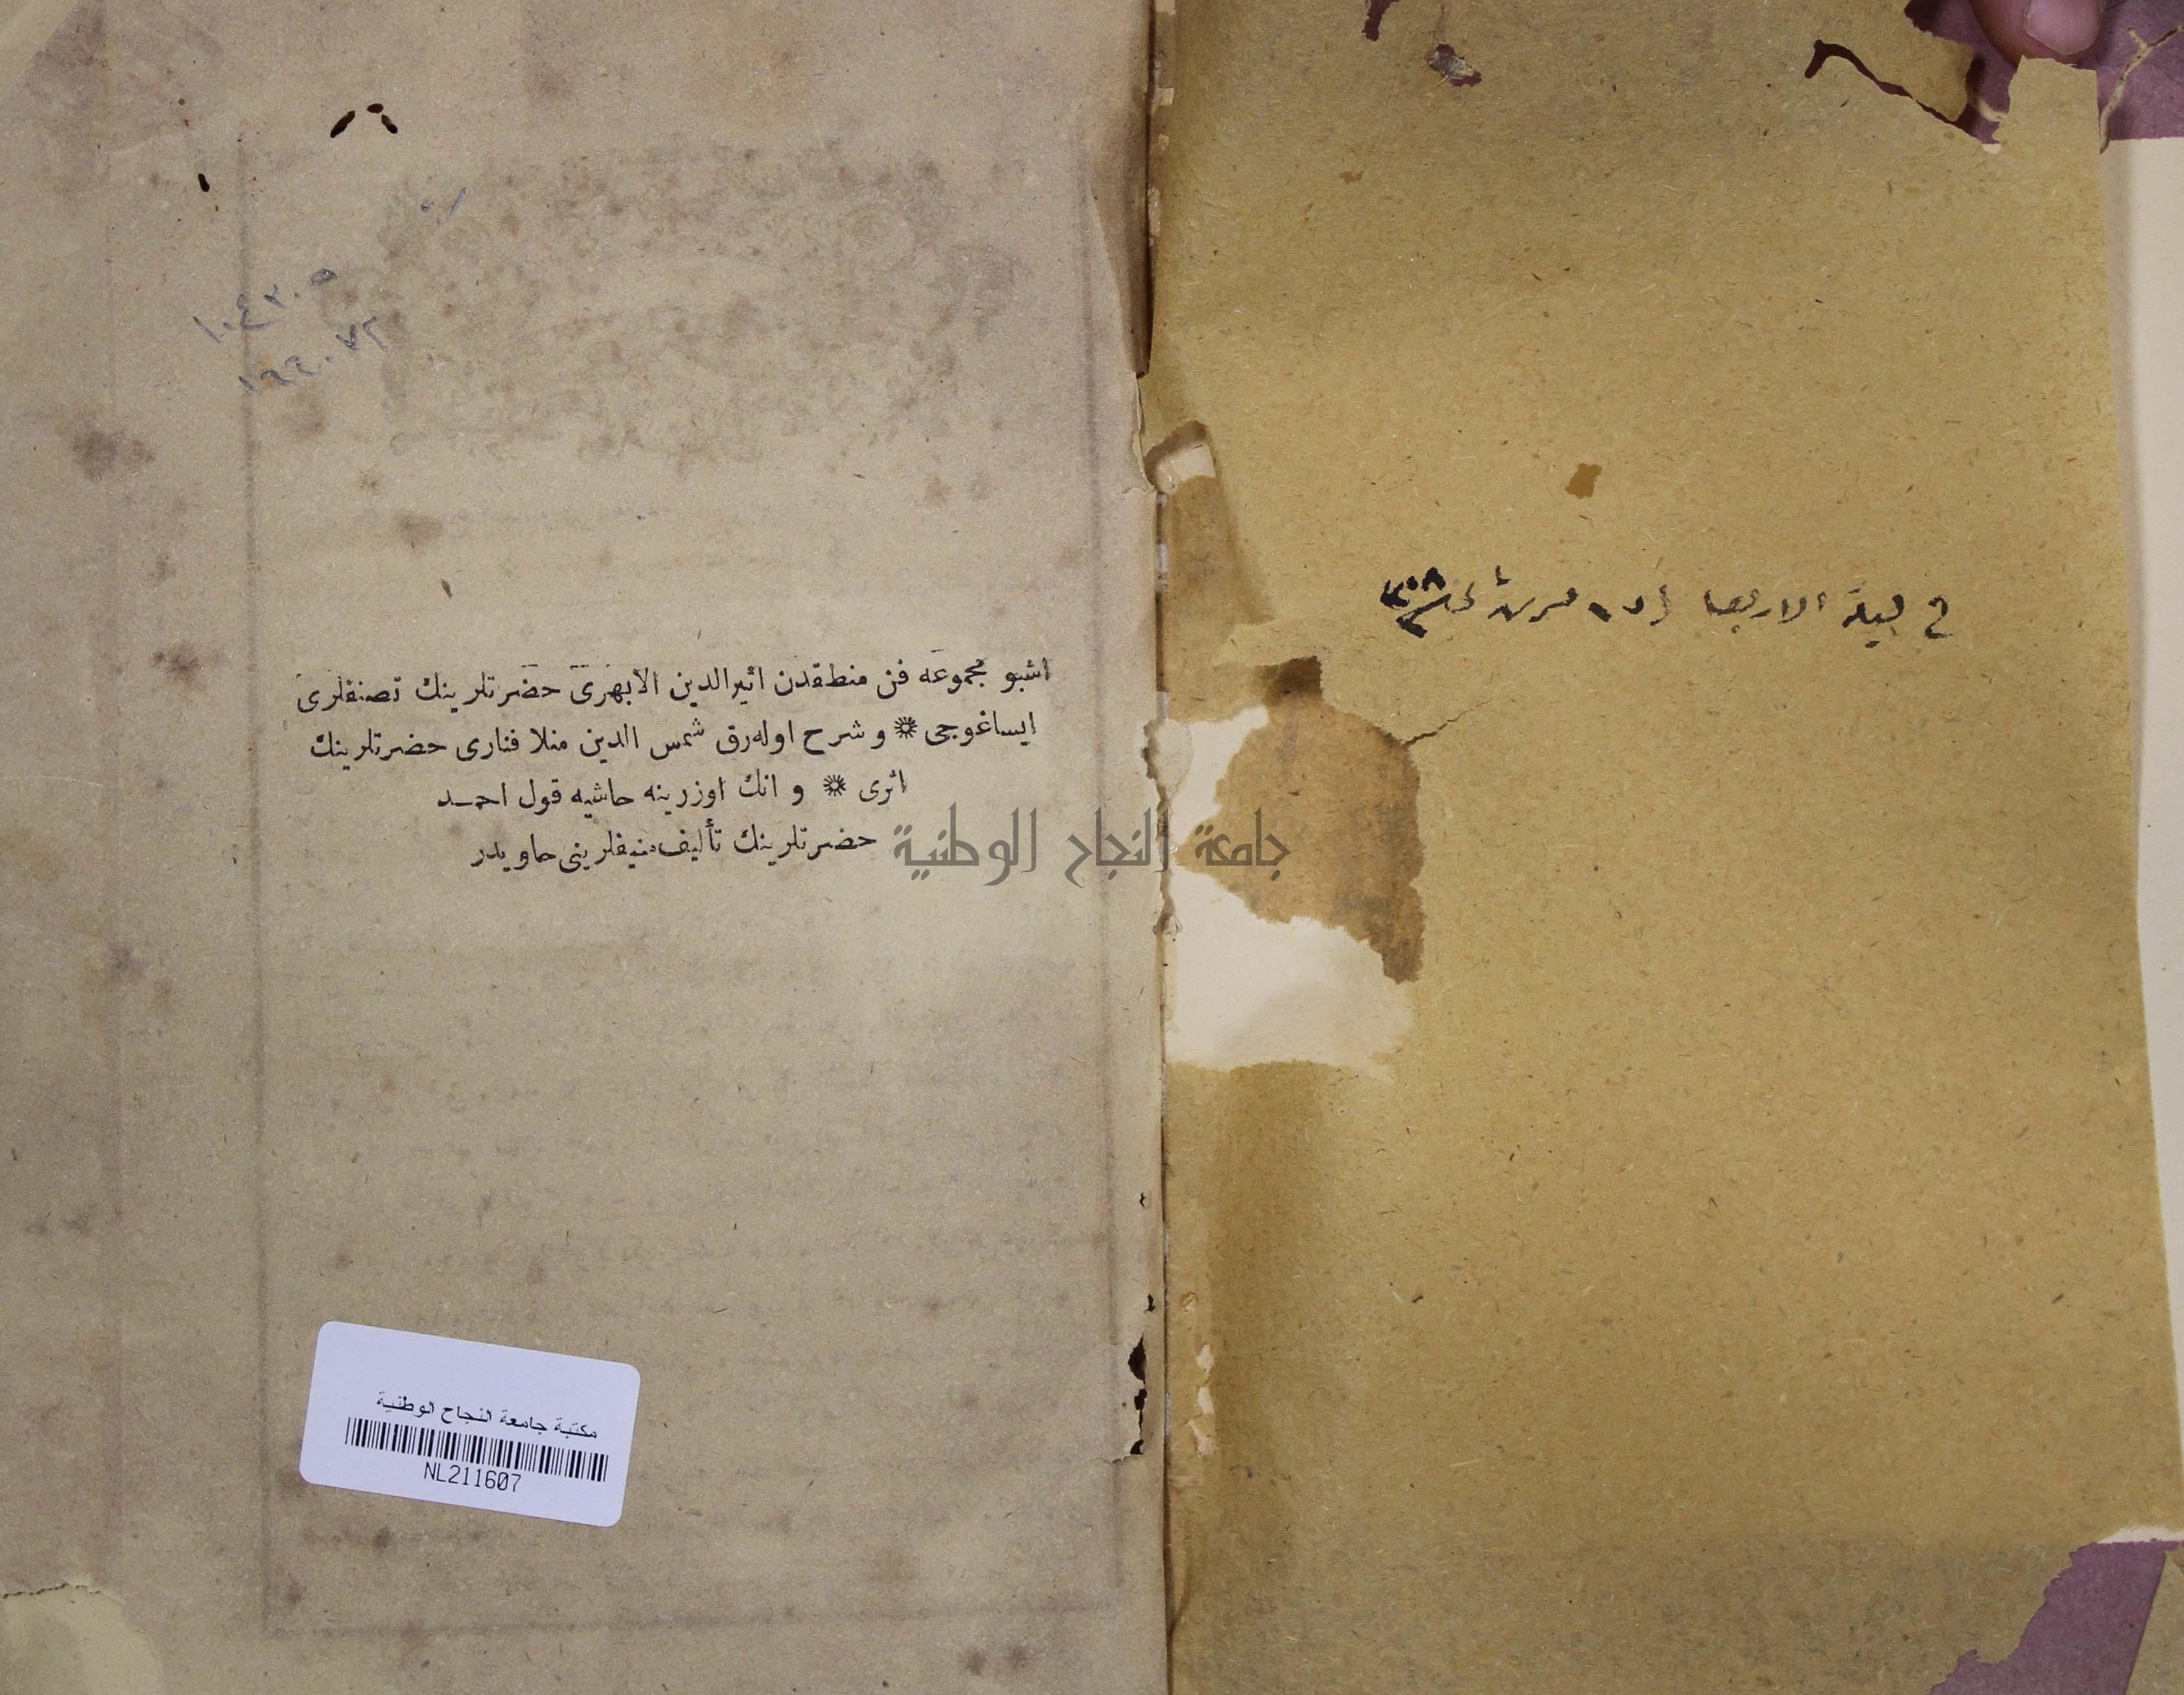 في ليلة الاربعا
اشبو مجموعه فن منطقدن اثيرالدين الابهرى حضرتلرينك تصنفلرى
ايساغوجى ❋ و شرح اولەرق شمس الدين منلا فنارى حضرتلرينك
اثرى ❋ و انك اوزرينه حاشيه قول احمد
حضرتلرينك تأليف منيفلرينى حاويدر
جامعة النجاح الوطنية
مكتبة جامعة النجاح الوطنية
NL211607